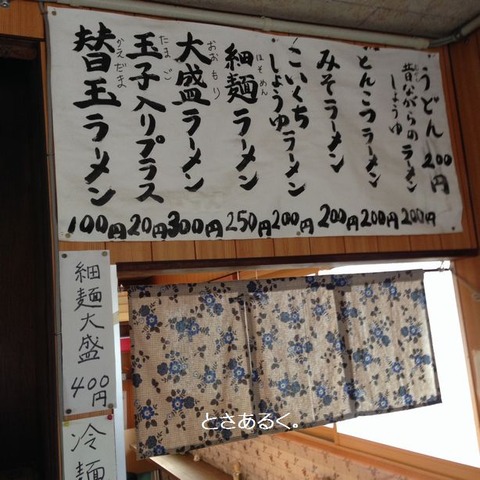 うどん 200円
昔ながらの
しょうゆ
ラーメン 200円
とんこつラーメン 200円
みそラーメン 200円
こいくち
しょうゆ
ラーメン 200円
細麺ラーメン 250円
ほそめん
大盛ラーメン 300円
おおもり
玉子入りプラス 20円
たまご
替玉ラーメン 100円
かえだま
細麺大盛 400円
冷麺
とさあるく。